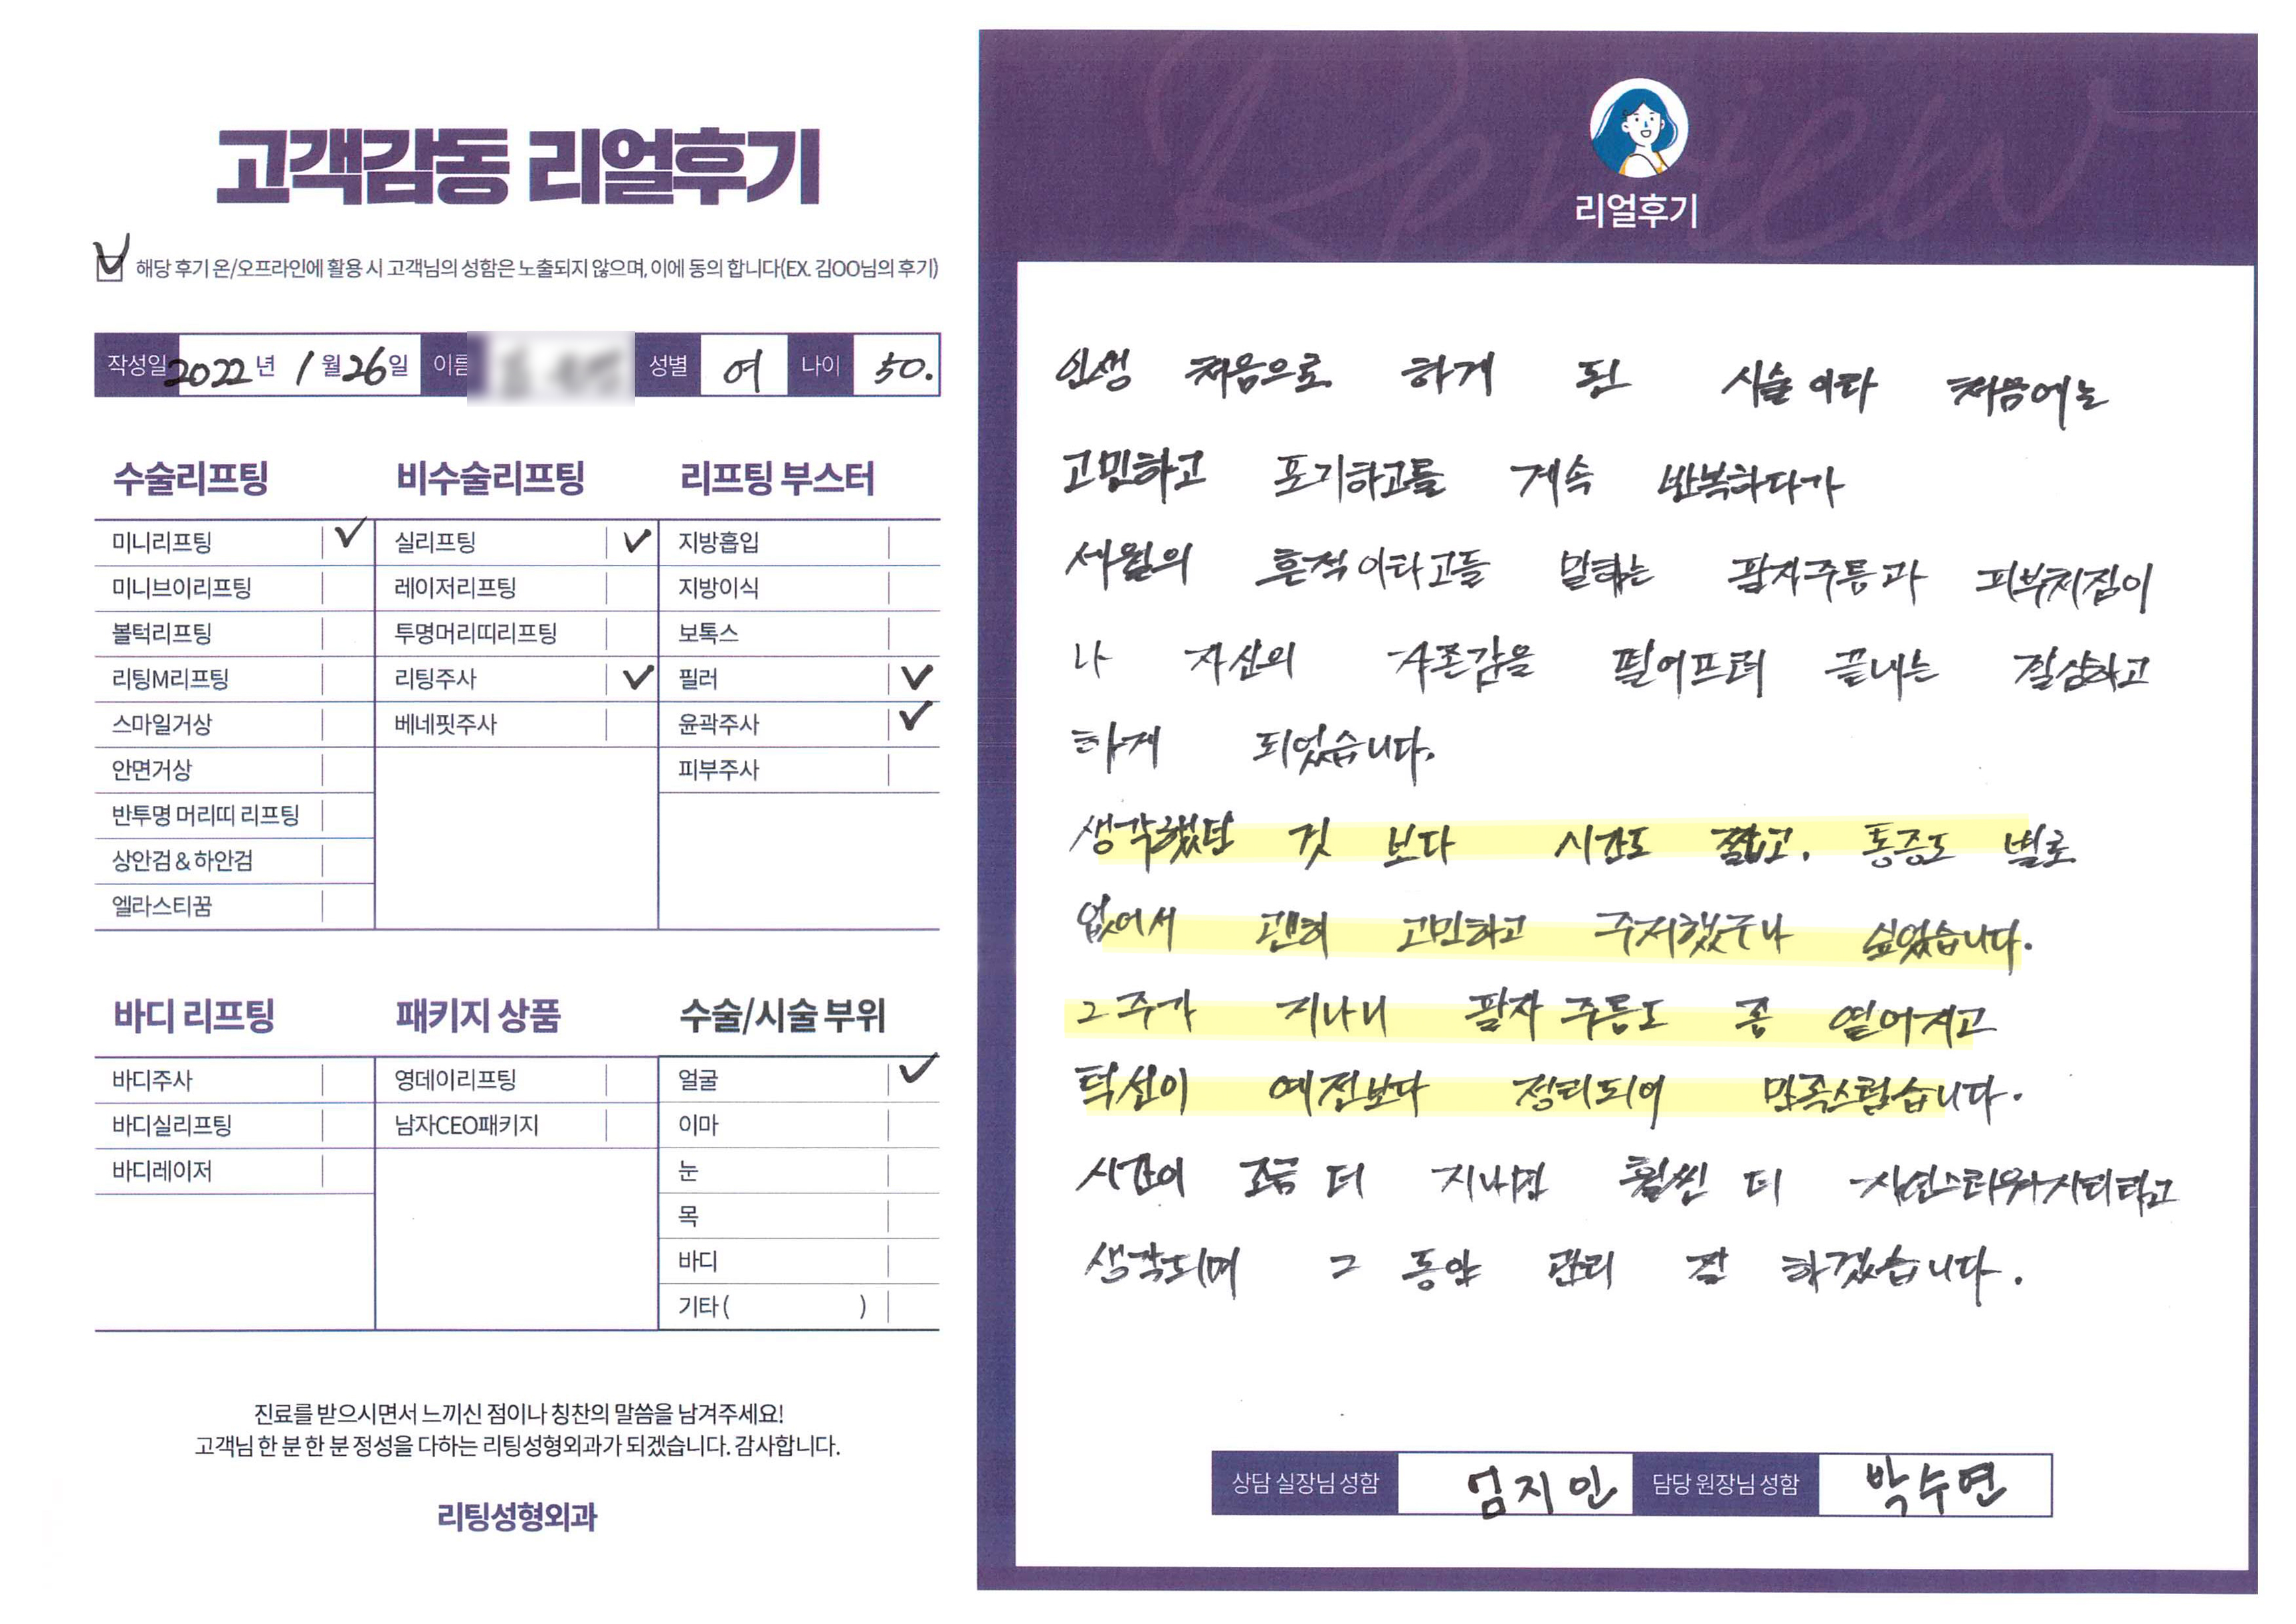 고객감동 리얼후기
해당 후기 온/오프라인에 활용 시 고객님의 성함은 노출되지 않으며, 이에 동의 합니다(EX. 김OO님의 후기)
작성일 2022년 1월 26일 이름 성별 여 나이 50.
수술리프팅 비수술리프팅 리프팅 부스터
미니리프팅 ✓ 실리프팅 ✓ 지방흡입
미니브이리프팅 레이저리프팅 지방이식
볼턱리프팅 투명머리띠리프팅 보톡스
리팅M리프팅 리팅주사 ✓ 필러 ✓
스마일거상 베네핏주사 윤곽주사 ✓
안면거상 피부주사
반투명 머리띠 리프팅
상안검 & 하안검
엘라스티꿈
바디 리프팅 패키지 상품 수술/시술 부위
바디주사 영데이리프팅 얼굴 ✓
바디실리프팅 남자CEO패키지 이마
바디레이저 눈
목
바디
기타 ( )
진료를 받으시면서 느끼신 점이나 칭찬의 말씀을 남겨주세요!
고객님 한 분 한 분 정성을 다하는 리팅성형외과가 되겠습니다. 감사합니다.
리팅성형외과
Review
리얼후기
인생 처음으로 하게 된 시술이다 처음에는
고민하고 포기하고를 계속 반복하다가
세월의 흔적이라고들 말하는 팔자주름과 피부처짐이
나 자신의 자존감을 떨어뜨려 끝내는 결심하고
하게 되었습니다.
생각했던 것 보다 시간도 짧고, 통증도 별로
없어서 괜히 고민하고 주저했구나 싶었습니다.
2주가 지나니 팔자 주름도 좀 옅어지고
턱선이 예전보다 정리되어 만족스럽습니다.
시간이 조금 더 지나면 훨씬 더 자연스러워지리라고
생각되며 그 동안 관리 잘 하겠습니다.
상담 실장님 성함 엄지인 담당 원장님 성함 박수연